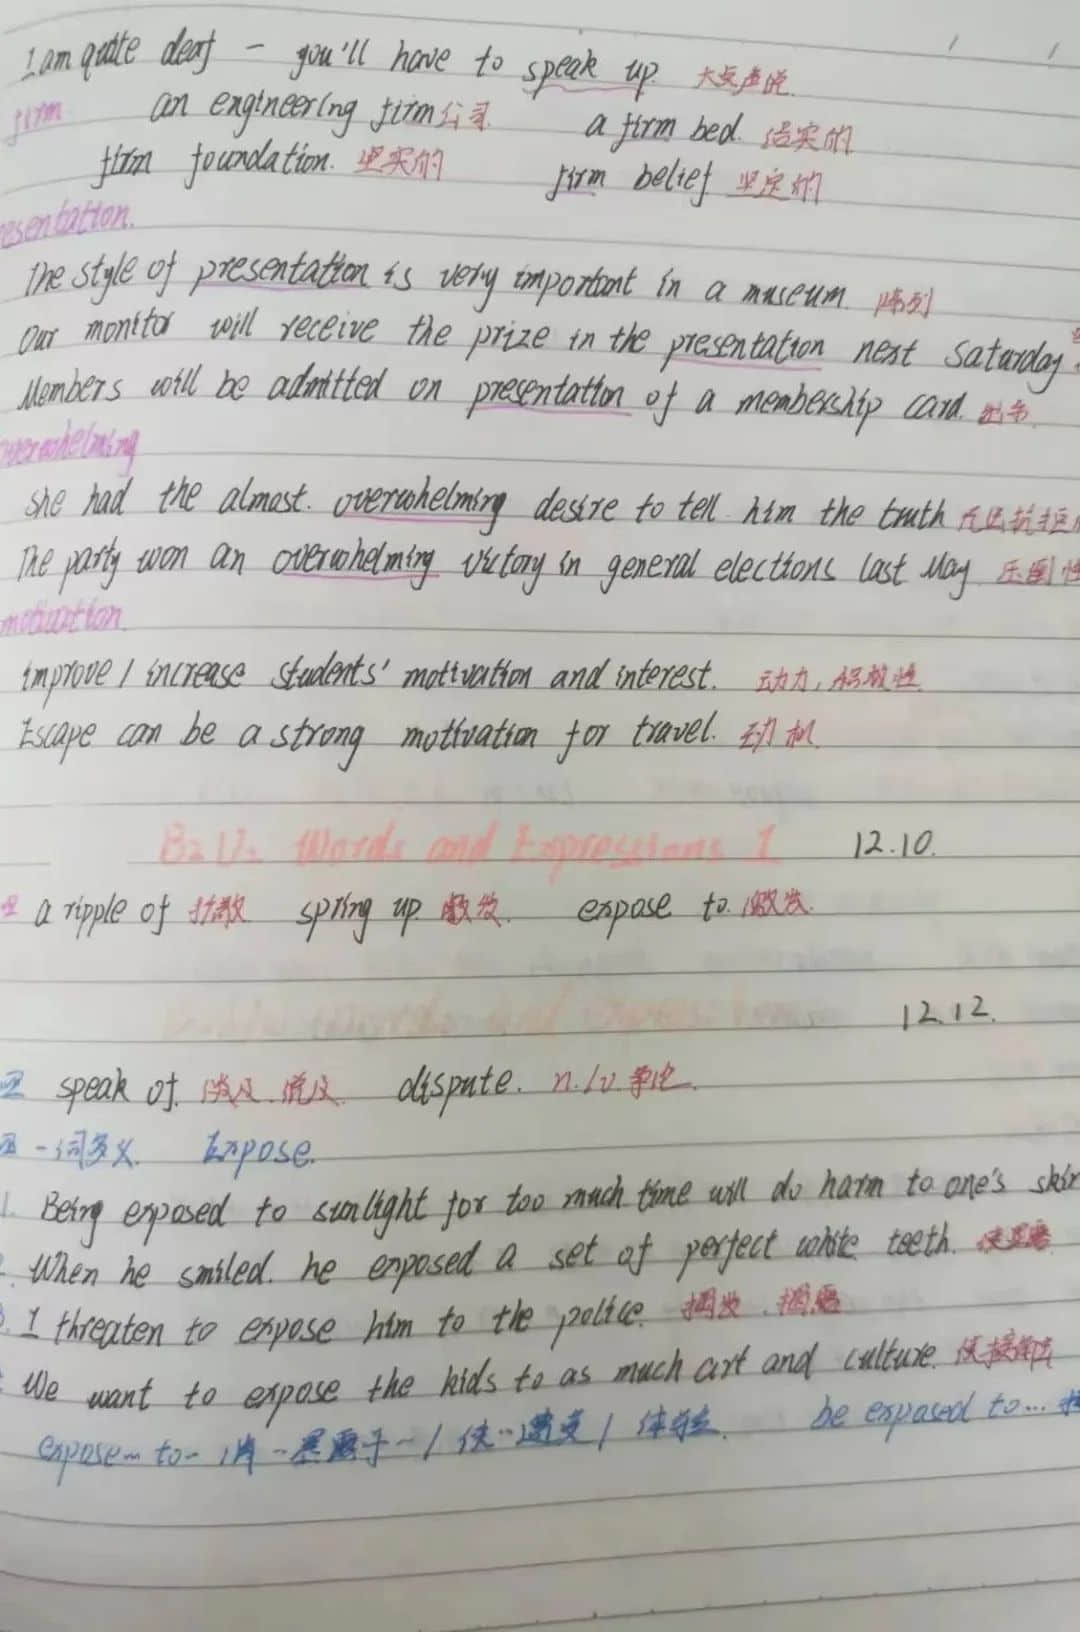 I am quite deaf - you'll have to speak up. 大点声说
firm an engineering firm 公司 a firm bed. 结实的
firm foundation. 坚实的 firm belief 坚定的
esentation.
The style of presentation is very important in a museum. 陈列
Our monitor will receive the prize in the presentation next Saturday
Members will be admitted on presentation of a membership card. 出示
overwhelming
She had the almost. overwhelming desire to tell him the truth 无法抗拒
The party won an overwhelming victory in general elections last May 压倒性
motivation
improve / increase students' motivation and interest. 动力,积极性
Escape can be a strong motivation for travel. 动机
Words and Expressions 1 12.10.
a ripple of spring up expose to
12.12.
speak of. 谈及 dispute. n./v. 争论
一词多义. Expose.
1. Being exposed to sunlight for too much time will do harm to one's skin
2. When he smiled. he exposed a set of perfect white teeth. 使显露
3. I threaten to expose him to the police. 揭发 揭露
We want to expose the kids to as much art and culture. 使接触
expose... to... 暴露于 / 使… / 体验. be exposed to...